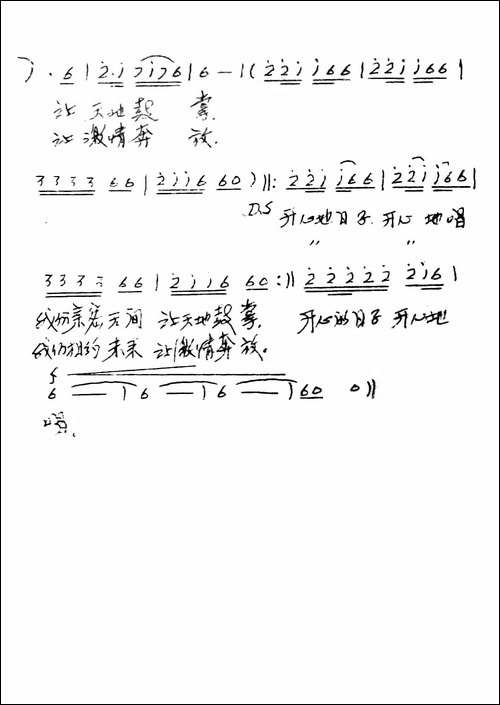 i · 6 | 2̇ · i 7i76 | 6 — | ( 2̇2̇i i66 | 2̇2̇i i66 |
让 天地鼓 掌.
让 激情奔 放.
3333 66 | 2̇ii6 60 ) ||: 2̇2̇i i66 | 2̇2̇i i66 |
D.S 开心的日子 开心 地唱
" "
3333 66 | 2̇ii6 60 :|| 2̇2̇2̇2̇2̇ 2̇i6 |
我们亲密无间 让天地鼓掌. 开心的日子 开心地
我们相约 未来 让激情奔 放。
f
6 — | 6 — | 6 — | 60 0 ||
唱.